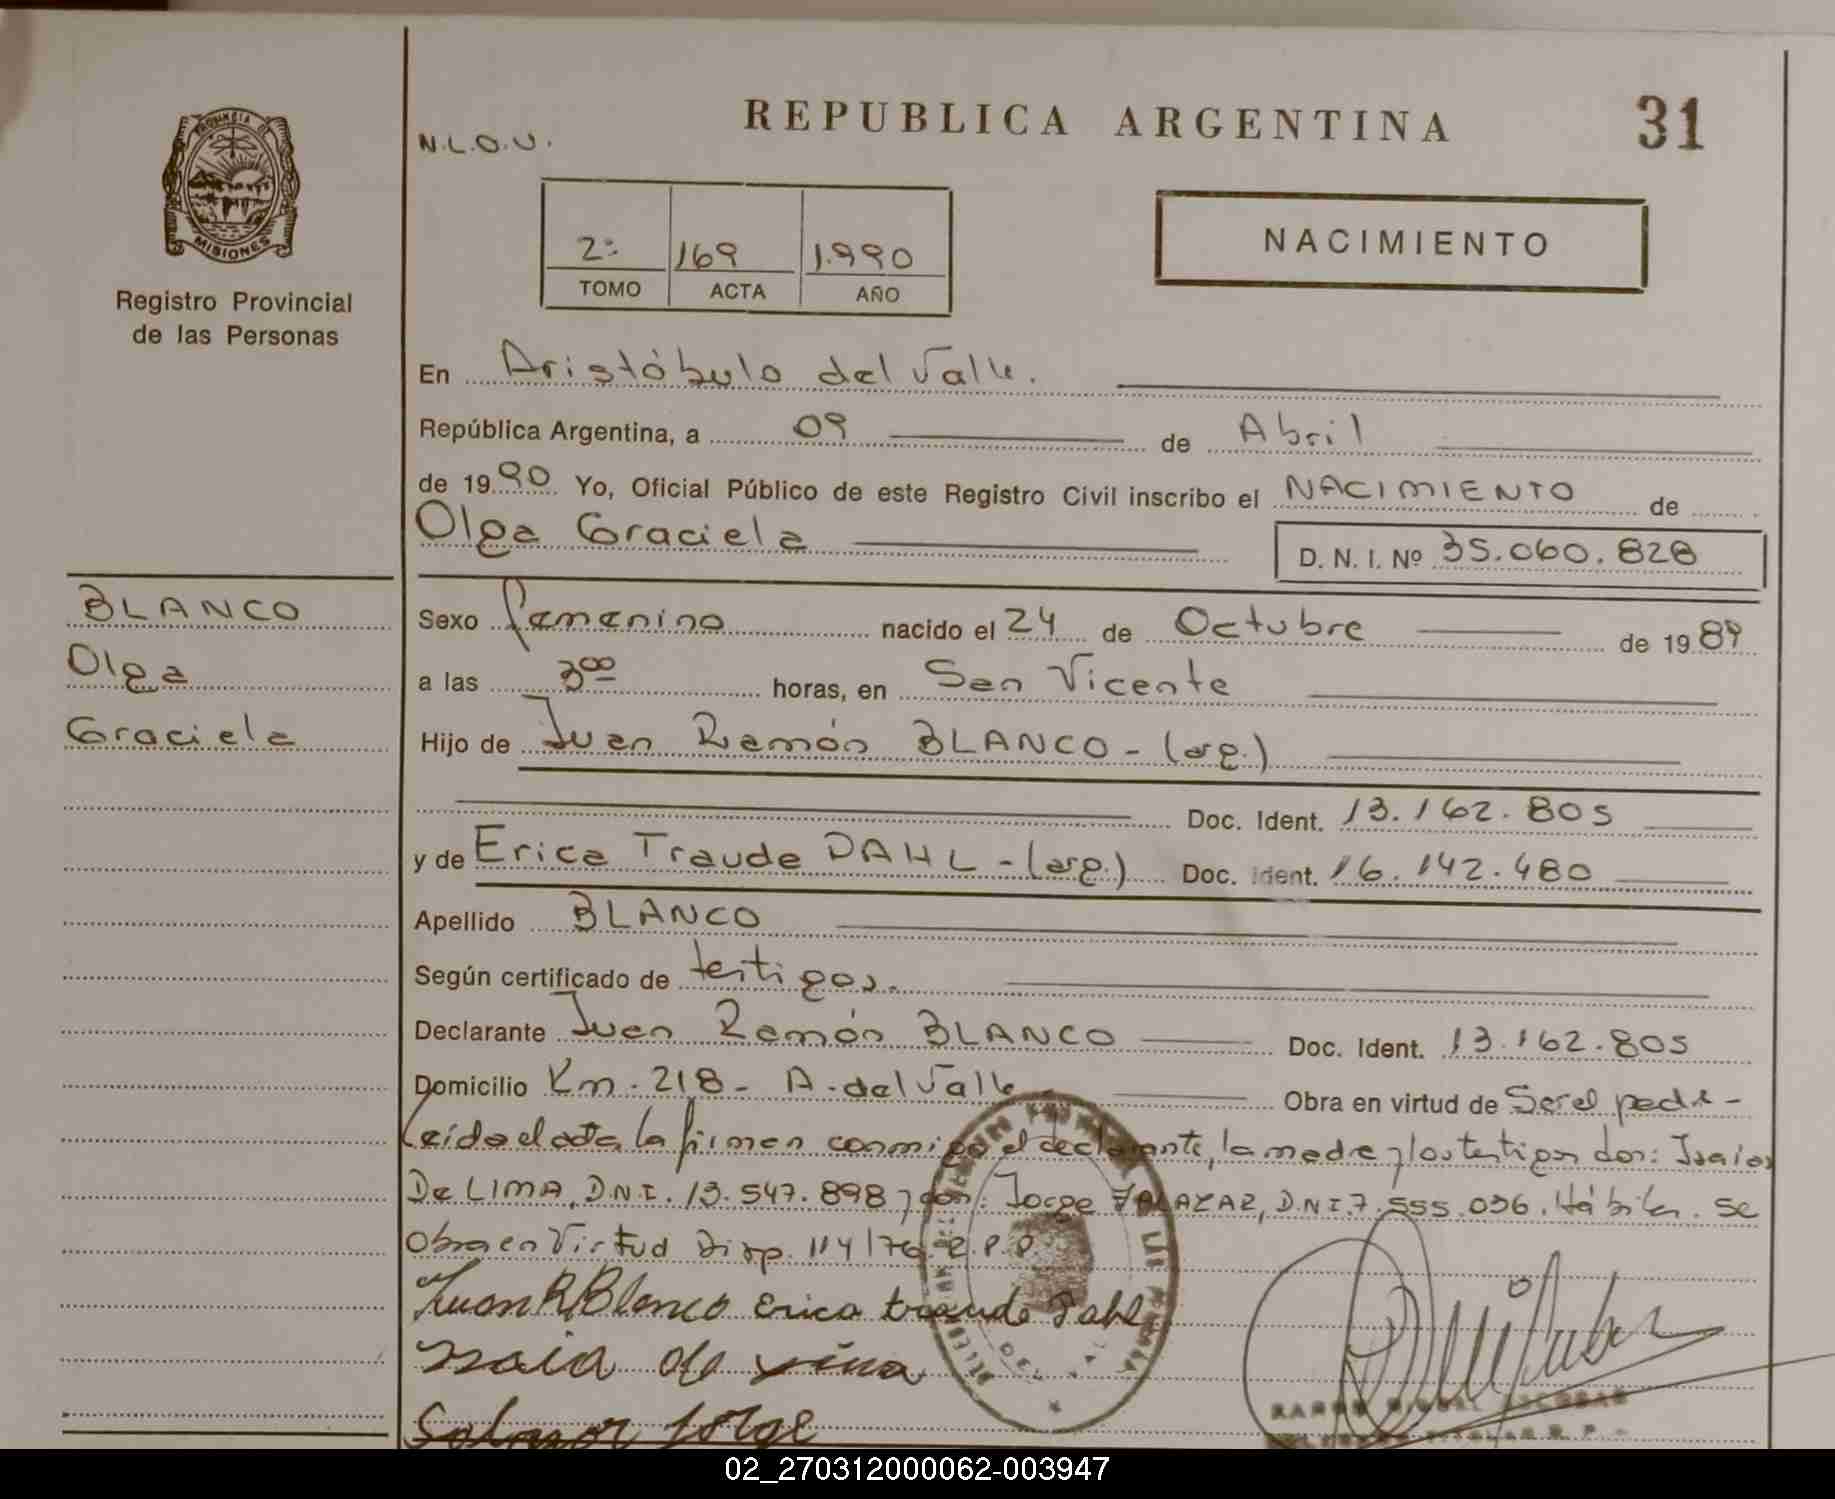 REPUBLICA ARGENTINA
31
N.L.O.U.
PROVINCIA DE
MISIONES
Registro Provincial
de las Personas
2º 169 1.990
TOMO ACTA AÑO
NACIMIENTO
En Aristóbulo del Valle.
República Argentina, a 09 de Abril
de 1990 Yo, Oficial Público de este Registro Civil inscribo el NACIMIENTO de
Olga Graciela
D. N. I. Nº 35.060.828
BLANCO
Olga
Graciela
Sexo femenino nacido el 24 de Octubre de 1989
a las 300 horas, en San Vicente
Hijo de Juan Ramón BLANCO - (arg.)
Doc. Ident. 13.162.805
y de Erica Traude DAHL - (arg.) Doc. Ident. 16.142.480
Apellido BLANCO
Según certificado de testigos.
Declarante Juan Ramón BLANCO Doc. Ident. 13.162.805
Domicilio Km. 218 - A. del Valle Obra en virtud de Ser el padre -
Leída el acta, la firman conmigo el declarante, la madre y los testigos don: Isaias
De LIMA, D.N.I. 13.547.898 y don: Jorge D.N.I. 7.555.036. Hábiles. Se
Obra en Virtud Disp. 114/76. R.P.P.
Juan R Blanco Erica traude Dahl
de
Jorge
02_270312000062-003947